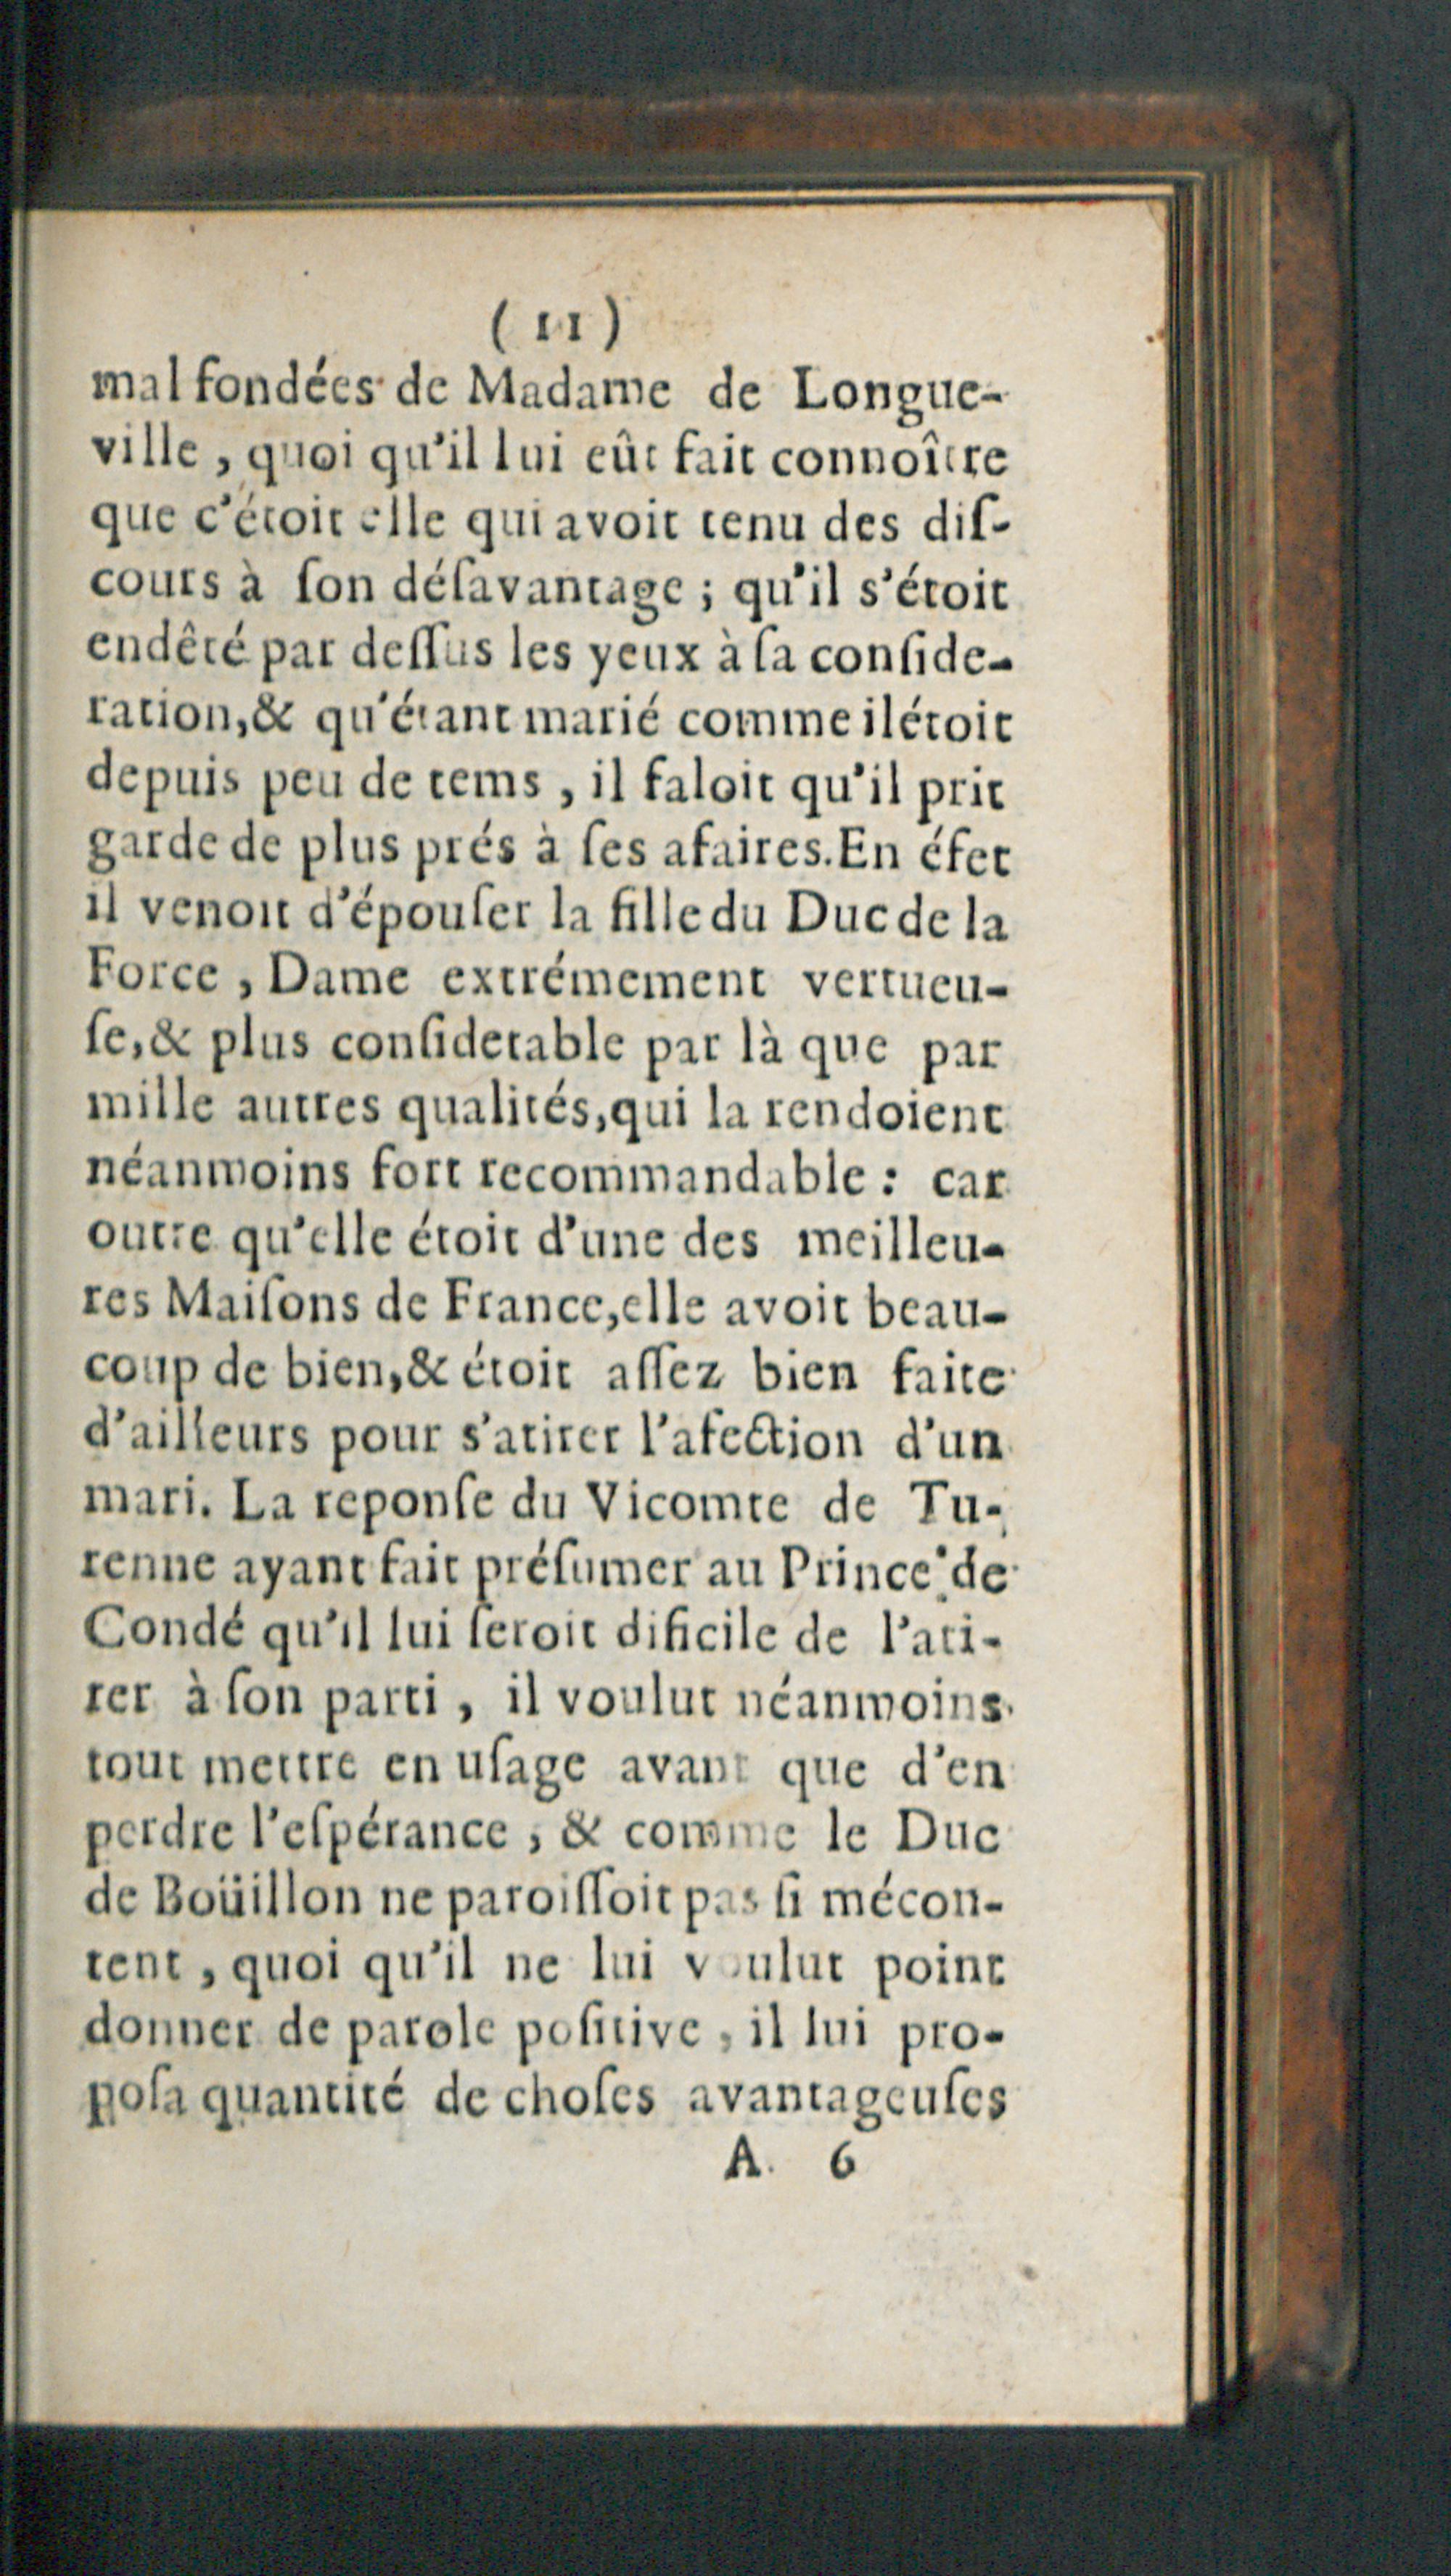 (11)
mal fondées de Madame de Longue-
ville, quoi qu'il lui eût fait connoître
que c'étoit elle qui avoit tenu des diſ-
cours à ſon déſavantage; qu'il s'étoit
endêté par deſſus les yeux à ſa conſide-
ration, & qu'étant marié comme il étoit
depuis peu de tems, il faloit qu'il prit
garde de plus prés à ſes afaires. En éfet
il venoit d'épouſer la fille du Duc de la
Force, Dame extrémement vertueu-
ſe, & plus conſiderable par là que par
mille autres qualités, qui la rendoient
néanmoins fort recommandable: car
outre qu'elle étoit d'une des meilleu-
res Maiſons de France, elle avoit beau-
coup de bien, & étoit aſſez bien faite
d'ailleurs pour s'atirer l'afection d'un
mari. La reponſe du Vicomte de Tu-
renne ayant fait préſumer au Prince de
Condé qu'il lui ſeroit dificile de l'ati-
rer à ſon parti, il voulut néanmoins
tout mettre en uſage avant que d'en
perdre l'eſpérance, & comme le Duc
de Boüillon ne paroiſſoit pas ſi mécon-
tent, quoi qu'il ne lui voulut point
donner de parole poſitive, il lui pro-
poſa quantité de choſes avantageuſes
A. 6